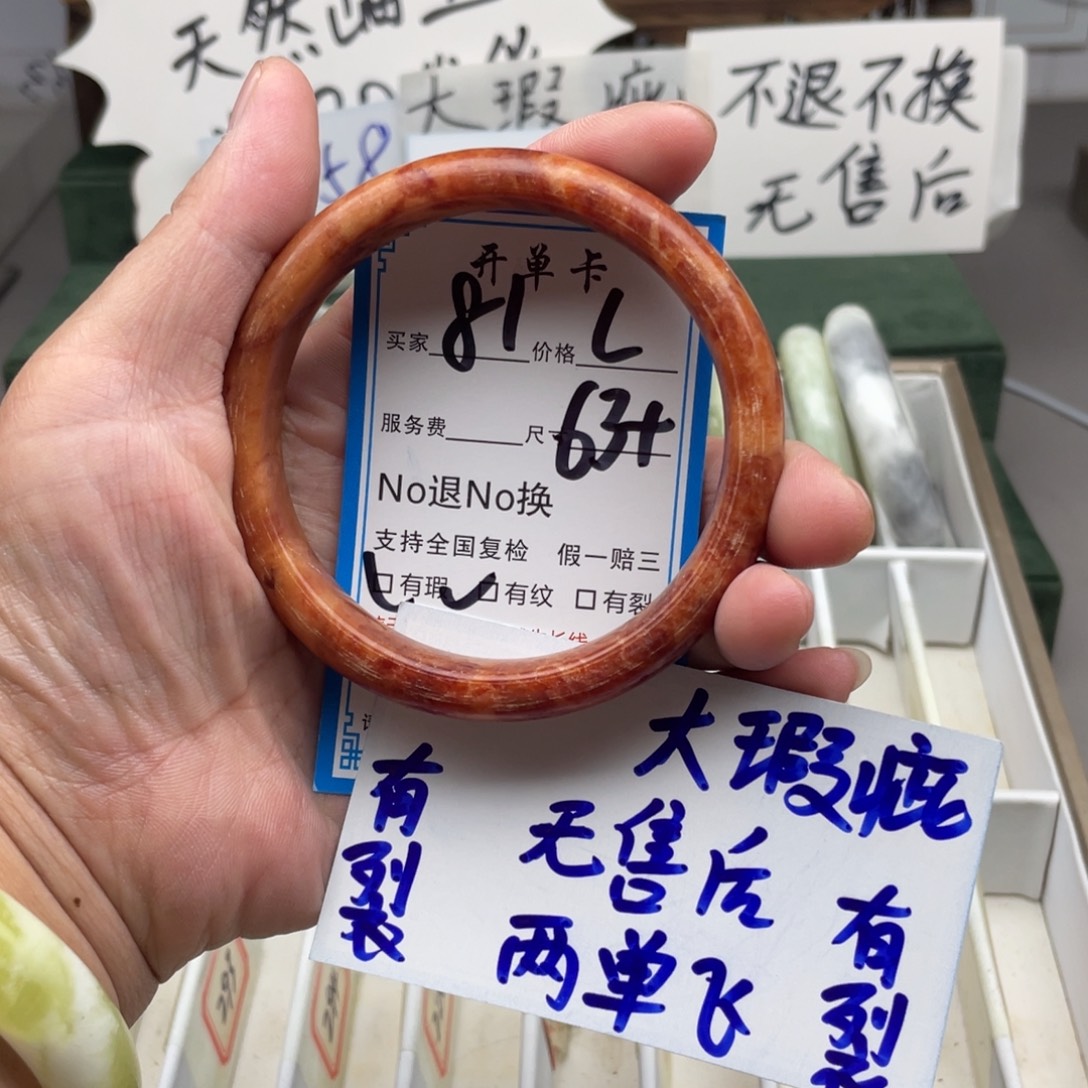 天然
大瑕疵
不退不换
无售后
58
开单卡
买家 81 价格 L
服务费 尺寸 63+
No退No换
支持全国复检 假一赔三
口有瑕 口有纹 口有裂
大瑕疵
无售后
两单飞
有裂
有裂